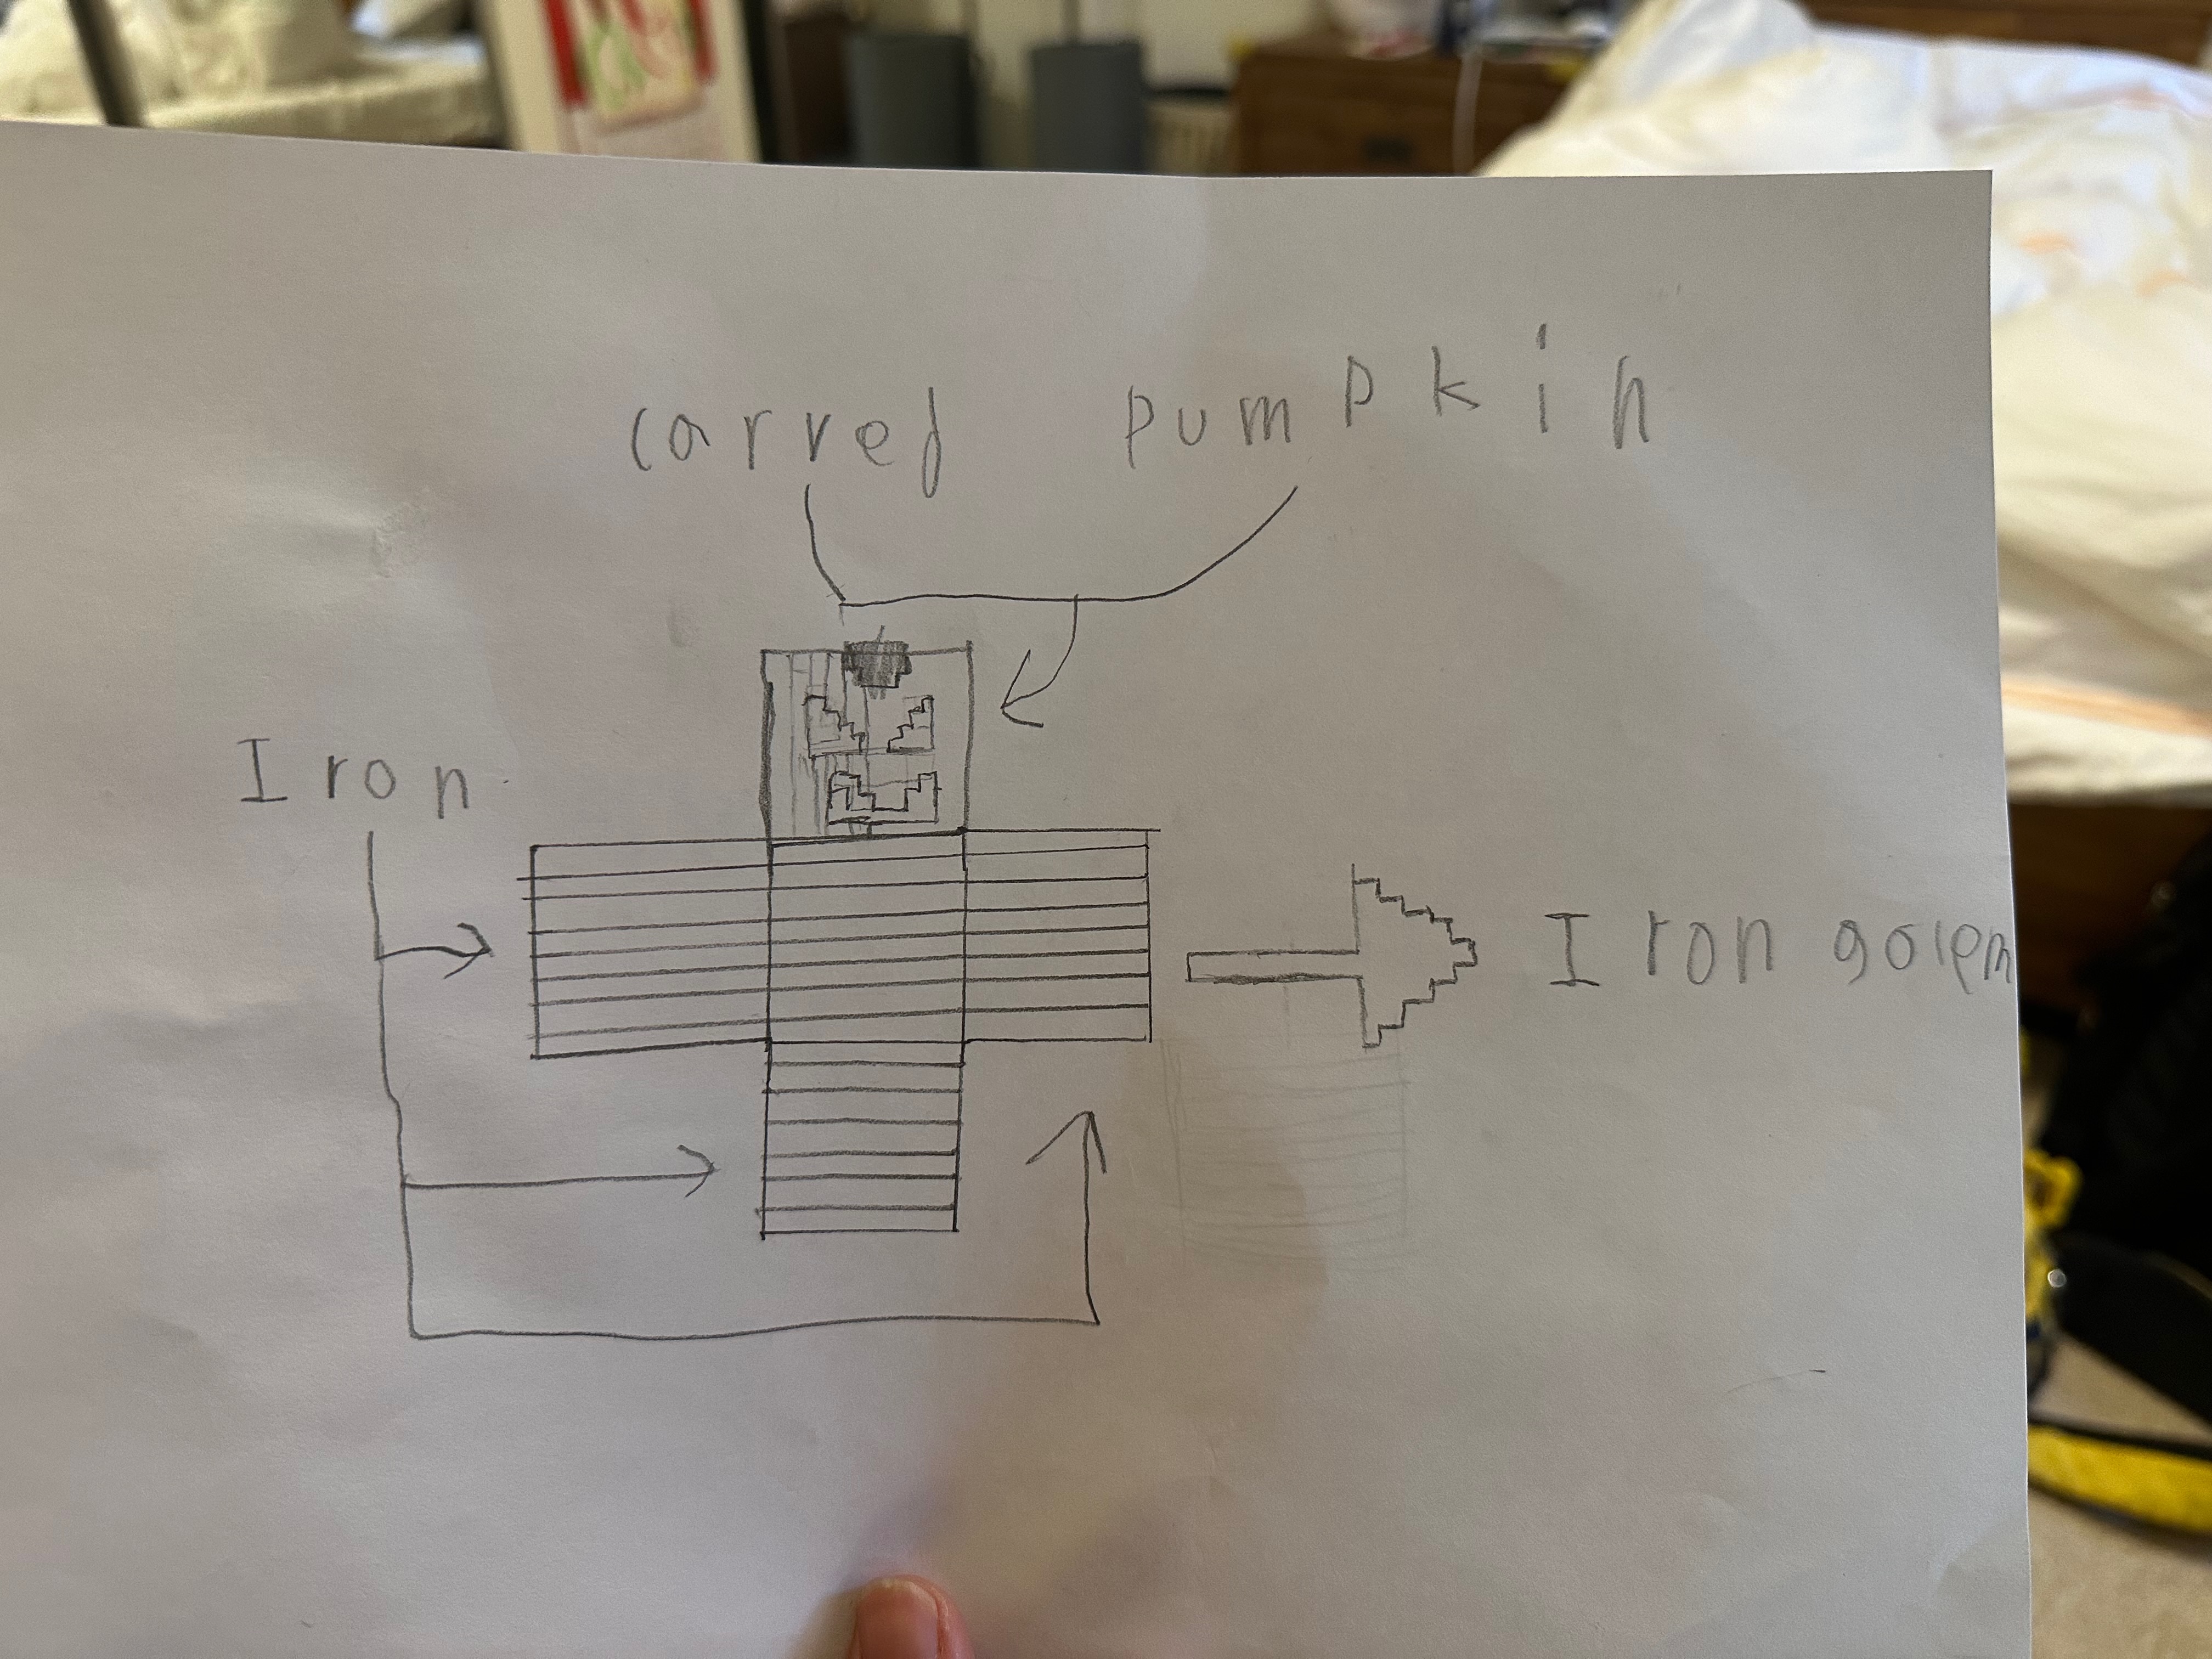 carved pumpkin
Iron
Iron golem